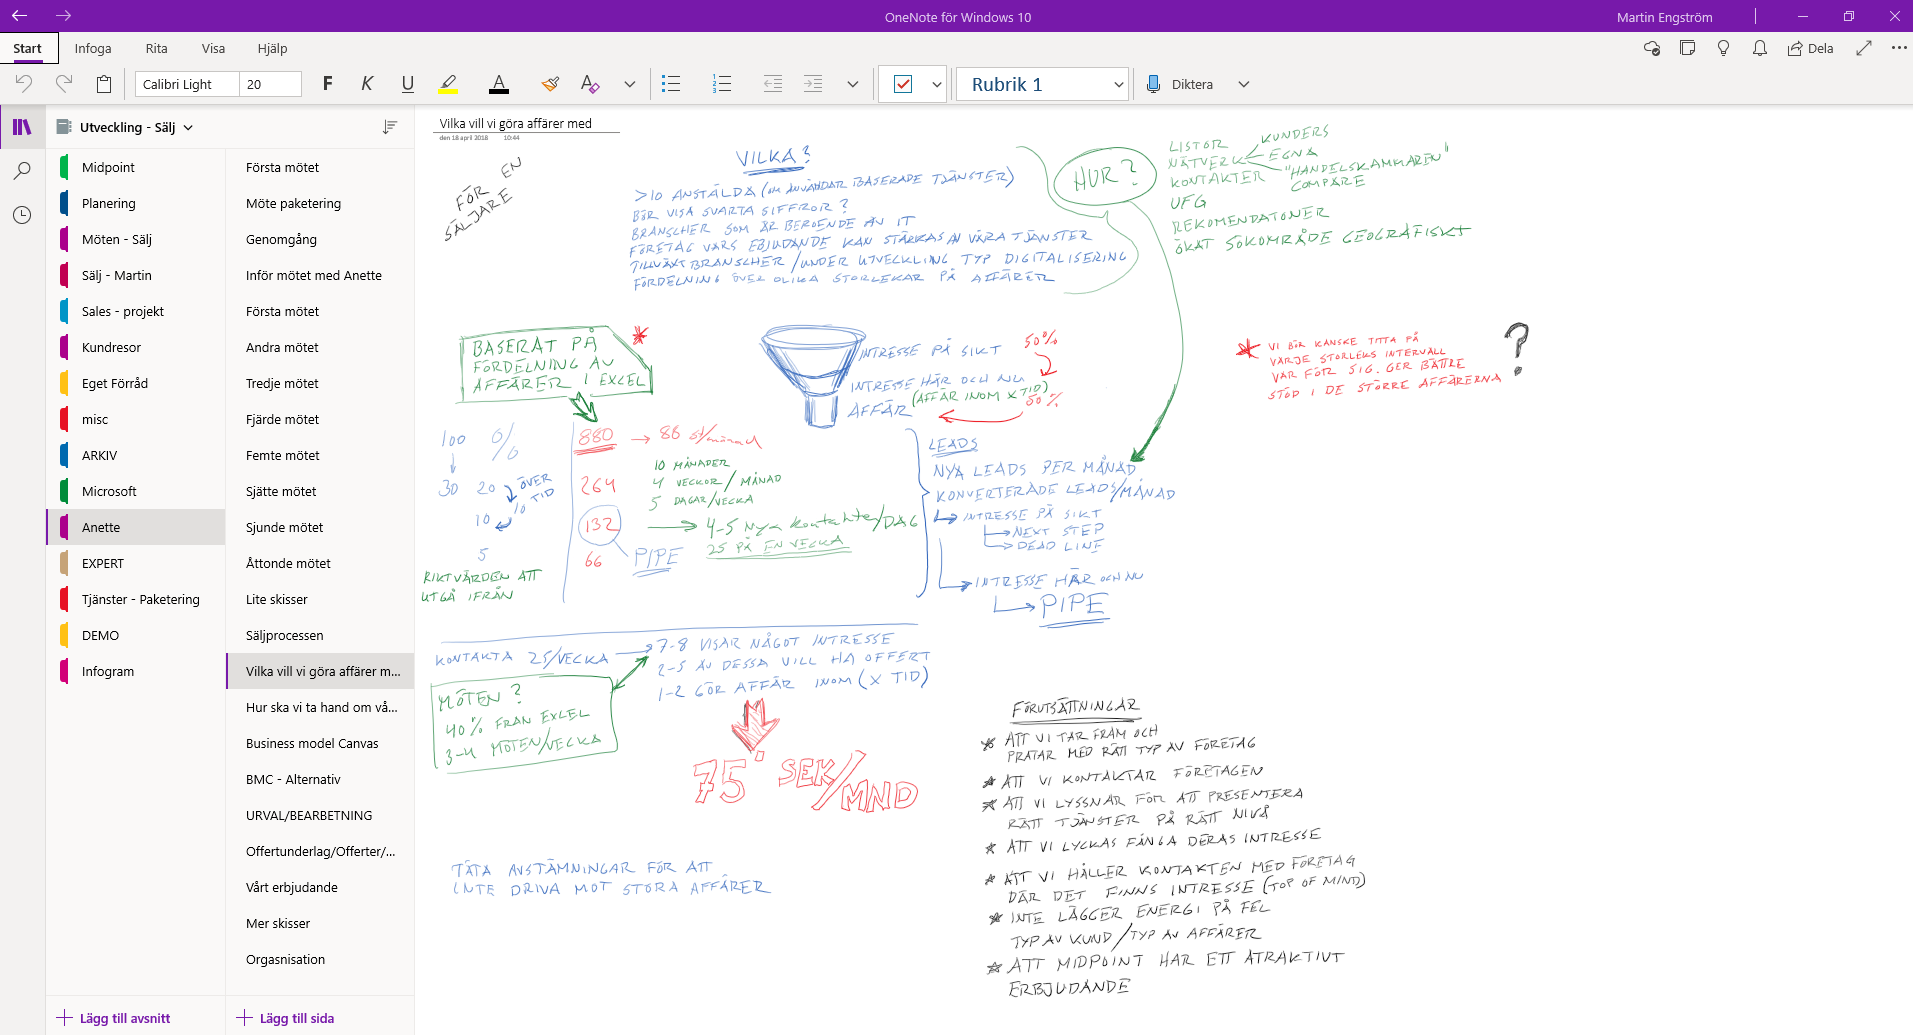 OneNote för Windows 10
Martin Engström
Start
Infoga
Rita
Visa
Hjälp
Dela
Calibri Light
20
F
K
U
A
Rubrik 1
Diktera
Utveckling - Sälj
Midpoint
Planering
Möten - Sälj
Sälj - Martin
Sales - projekt
Kundresor
Eget Förråd
misc
ARKIV
Microsoft
Anette
EXPERT
Tjänster - Paketering
DEMO
Infogram
Lägg till avsnitt
Första mötet
Möte paketering
Genomgång
Inför mötet med Anette
Första mötet
Andra mötet
Tredje mötet
Fjärde mötet
Femte mötet
Sjätte mötet
Sjunde mötet
Åttonde mötet
Lite skisser
Säljprocessen
Vilka vill vi göra affärer m...
Hur ska vi ta hand om vå...
Business model Canvas
BMC - Alternativ
URVAL/BEARBETNING
Offertunderlag/Offerter/...
Vårt erbjudande
Mer skisser
Orgasnisation
Lägg till sida
Vilka vill vi göra affärer med
den 18 april 2018 10:44
FÖR EN
SÄLJARE
VILKA?
>10 ANSTÄLDA (OM ANVÄNDAR BASERADE TJÄNSTER)
BÖR VISA SVARTA SIFFROR?
BRANSCHER SOM ÄR BEROENDE AV IT
FÖRETAG VARS EBJUDANDE KAN STÄRKAS AV VÅRA TJÄNSTER
TILLVÄXT BRANSCHER/UNDER UTVECKLING TYP DIGITALISERING
FÖRDELNING ÖVER OLIKA STORLEKAR PÅ AFFÄRER
HUR?
LISTOR
NÄTVERK
KUNDERS
EGNA
"HANDELSKAMMAREN"
COMPARE
KONTAKTER
UFG
REKOMENDATONER
ÖKAT SÖKOMRÅDE GEOGRAFISKT
BASERAT PÅ
FÖRDELNING AV
AFFÄRER I EXCEL
INTRESSE PÅ SIKT
50%
INTRESSE HÄR OCH NU
(AFFÄR INOM X TID)
AFFÄR
50%
VI BÖR KANSKE TITTA PÅ
VARJE STORLEKS INTERVALL
VAR FÖR SIG. GER BÄTTRE
STÖD I DE STÖRRE AFFÄRERNA
?
100 %
30 20 ÖVER
TID
10 %
5
RIKTVÄRDEN ATT
UTGÅ IFRÅN
880 → 88 st/månad
10 MÅNADER
264
4 VECKOR/MÅNAD
5 DAGAR/VECKA
132 → 4-5 Nya kontakter/DAG
25 PÅ EN VECKA
66 PIPE
LEADS
NYA LEADS PER MÅNAD
KONVERTERADE LEADS/MÅNAD
INTRESSE PÅ SIKT
NEXT STEP
DEAD LINE
INTRESSE HÄR OCH NU
PIPE
KONTAKTA 25/VECKA → 7-8 VISAR NÅGOT INTRESSE
2-5 AV DESSA VILL HA OFFERT
1-2 GÖR AFFÄR INOM (X TID)
MÖTEN?
40% FRÅN EXLEL
3-4 MÖTEN/VECKA
75' SEK/MND
TÄTA AVSTÄMNINGAR FÖR ATT
INTE DRIVA MOT STORA AFFÄRER
FÖRUTSÄTTNINGAR
* ATT VI TAR FRAM OCH
PRATAR MED RÄTT TYP AV FÖRETAG
* ATT VI KONTAKTAR FÖRETAGEN
* ATT VI LYSSNAR FÖR ATT PRESENTERA
RÄTT TJÄNSTER PÅ RÄTT NIVÅ
* ATT VI LYCKAS FÅNGA DERAS INTRESSE
* ATT VI HÅLLER KONTAKTEN MED FÖRETAG
DÄR DET FINNS INTRESSE (TOP OF MIND)
* INTE LÄGGER ENERGI PÅ FEL
TYP AV KUND/TYP AV AFFÄRER
* ATT MIDPOINT HAR ETT ATRAKTIVT
ERBJUDANDE